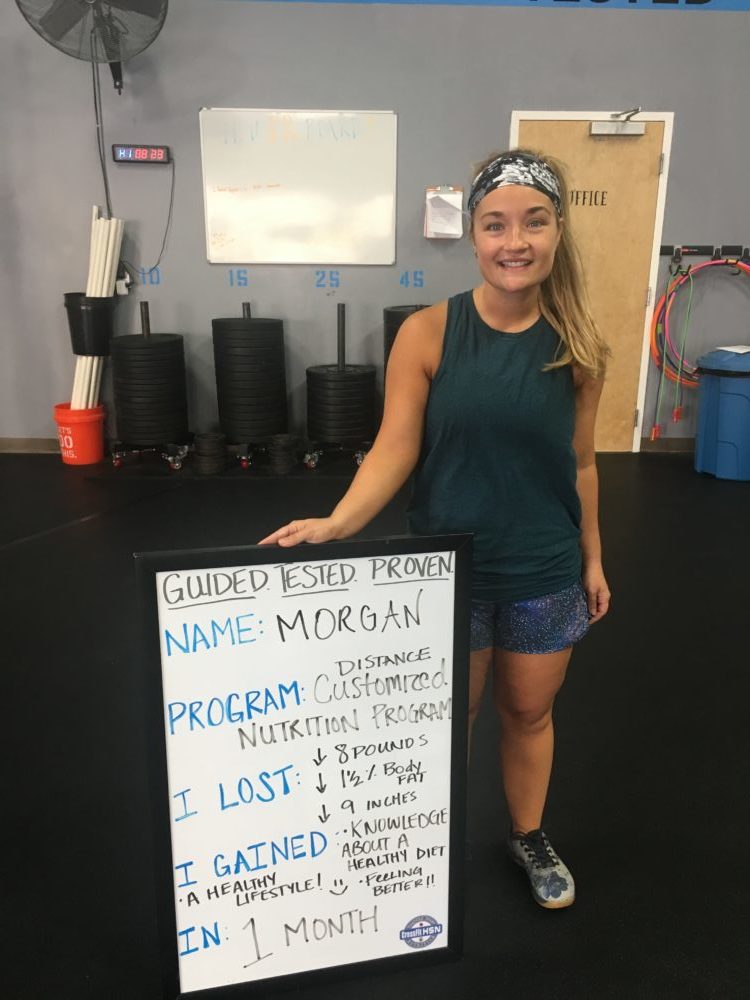 TESTED
HI 08 23
10 15 25 45
OFFICE
LET'S
DO
THIS.
GUIDED. TESTED. PROVEN.
NAME: MORGAN
DISTANCE
PROGRAM: Customized
NUTRITION PROGRAM
I LOST: ↓ 8 POUNDS
↓ 1½ % Body
FAT
↓ 9 INCHES
I GAINED: • KNOWLEDGE
ABOUT A
HEALTHY DIET
• A HEALTHY
LIFESTYLE!
• FEELING
BETTER!!
IN: 1 MONTH
CrossFit HSN